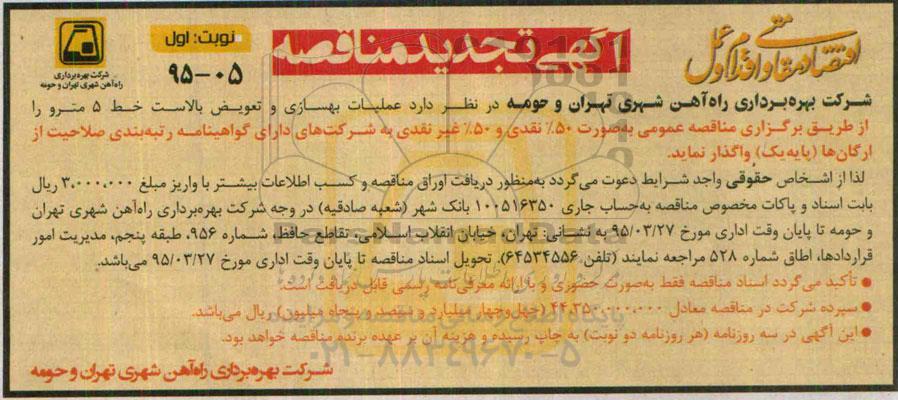 اقتصاد مقاومتی اقدام و عمل
آگهی تجدید مناقصه
نوبت: اول
۹۵-۰۵
شرکت بهره‌برداری
راه‌آهن شهری تهران و حومه
شرکت بهره‌برداری راه‌آهن شهری تهران و حومه در نظر دارد عملیات بهسازی و تعویض بالاست خط ۵ مترو را
از طریق برگزاری مناقصه عمومی به‌صورت ۵۰٪ نقدی و ۵۰٪ غیر نقدی به شرکت‌های دارای گواهینامه رتبه‌بندی صلاحیت از
ارگان‌ها (پایه یک) واگذار نماید.
لذا از اشخاص حقوقی واجد شرایط دعوت می‌گردد به‌منظور دریافت اوراق مناقصه و کسب اطلاعات بیشتر با واریز مبلغ ۳،۰۰۰،۰۰۰ ریال
بابت اسناد و پاکات مخصوص مناقصه به‌حساب جاری ۱۰۰۵۱۶۳۵۰ بانک شهر (شعبه صادقیه) در وجه شرکت بهره‌برداری راه‌آهن شهری تهران
و حومه تا پایان وقت اداری مورخ ۹۵/۰۳/۲۷ به نشانی: تهران، خیابان انقلاب اسلامی، تقاطع حافظ، شماره ۹۵۶، طبقه پنجم، مدیریت امور
قراردادها، اطاق شماره ۵۲۸ مراجعه نمایند (تلفن ۶۴۵۳۴۵۵۶). تحویل اسناد مناقصه تا پایان وقت اداری مورخ ۹۵/۰۳/۲۷ می‌باشد.
• تأکید می‌گردد اسناد مناقصه فقط به‌صورت حضوری و با ارائه معرفی‌نامه رسمی قابل دریافت است.
• سپرده شرکت در مناقصه معادل (چهل‌وچهار میلیارد و سیصد و پنجاه میلیون) ریال می‌باشد.
• این آگهی در سه روزنامه (هر روزنامه دو نوبت) به چاپ رسیده و هزینه آن بر عهده برنده مناقصه خواهد بود.
۰۲۱-۸۸۳۴۹۶۷۰-۵
شرکت بهره‌برداری راه‌آهن شهری تهران و حومه